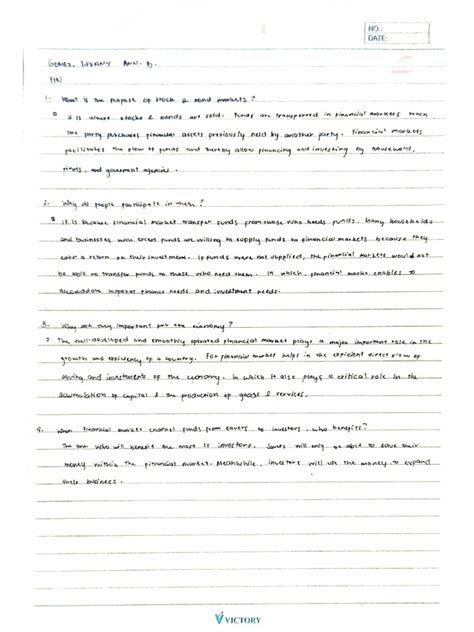 NO.:
DATE:
Ann. D.
1. What is the purpose of stock & bond markets?
It is where stocks & bonds are sold. Funds are transferred in financial markets when
one party purchases financial assets previously held by another party. Financial markets
facilitates the flow of funds and thereby allow financing and investing by households,
firms, and goverment agencies.
2. Why do people participate in them?
It is because financial market transfer funds from those who needs funds. Many households
and businesses with excess funds are willing to supply funds to financial markets because they
earn a return on their investment. If funds were not supplied, the financial markets would not
be able to transfer funds to those who need them. In which, financial market enables to
finance needs and investment needs.
3. Why are they important for the economy?
The well-developed and smoothly operated financial market plays a major important role in the
growth and efficiency of a country. For financial market helps in the efficient direct flow of
saving and investments of the economy. In which it also plays a critical role in the
accumulation of capital & the production of goods & services.
4. When financial market channel funds from savers to investors, who benefits?
The one who will benefit the most is investors. Savers will only be able to save their
money within the financial market. Meanwhile, investors will use the money to expand
their business.
VICTORY